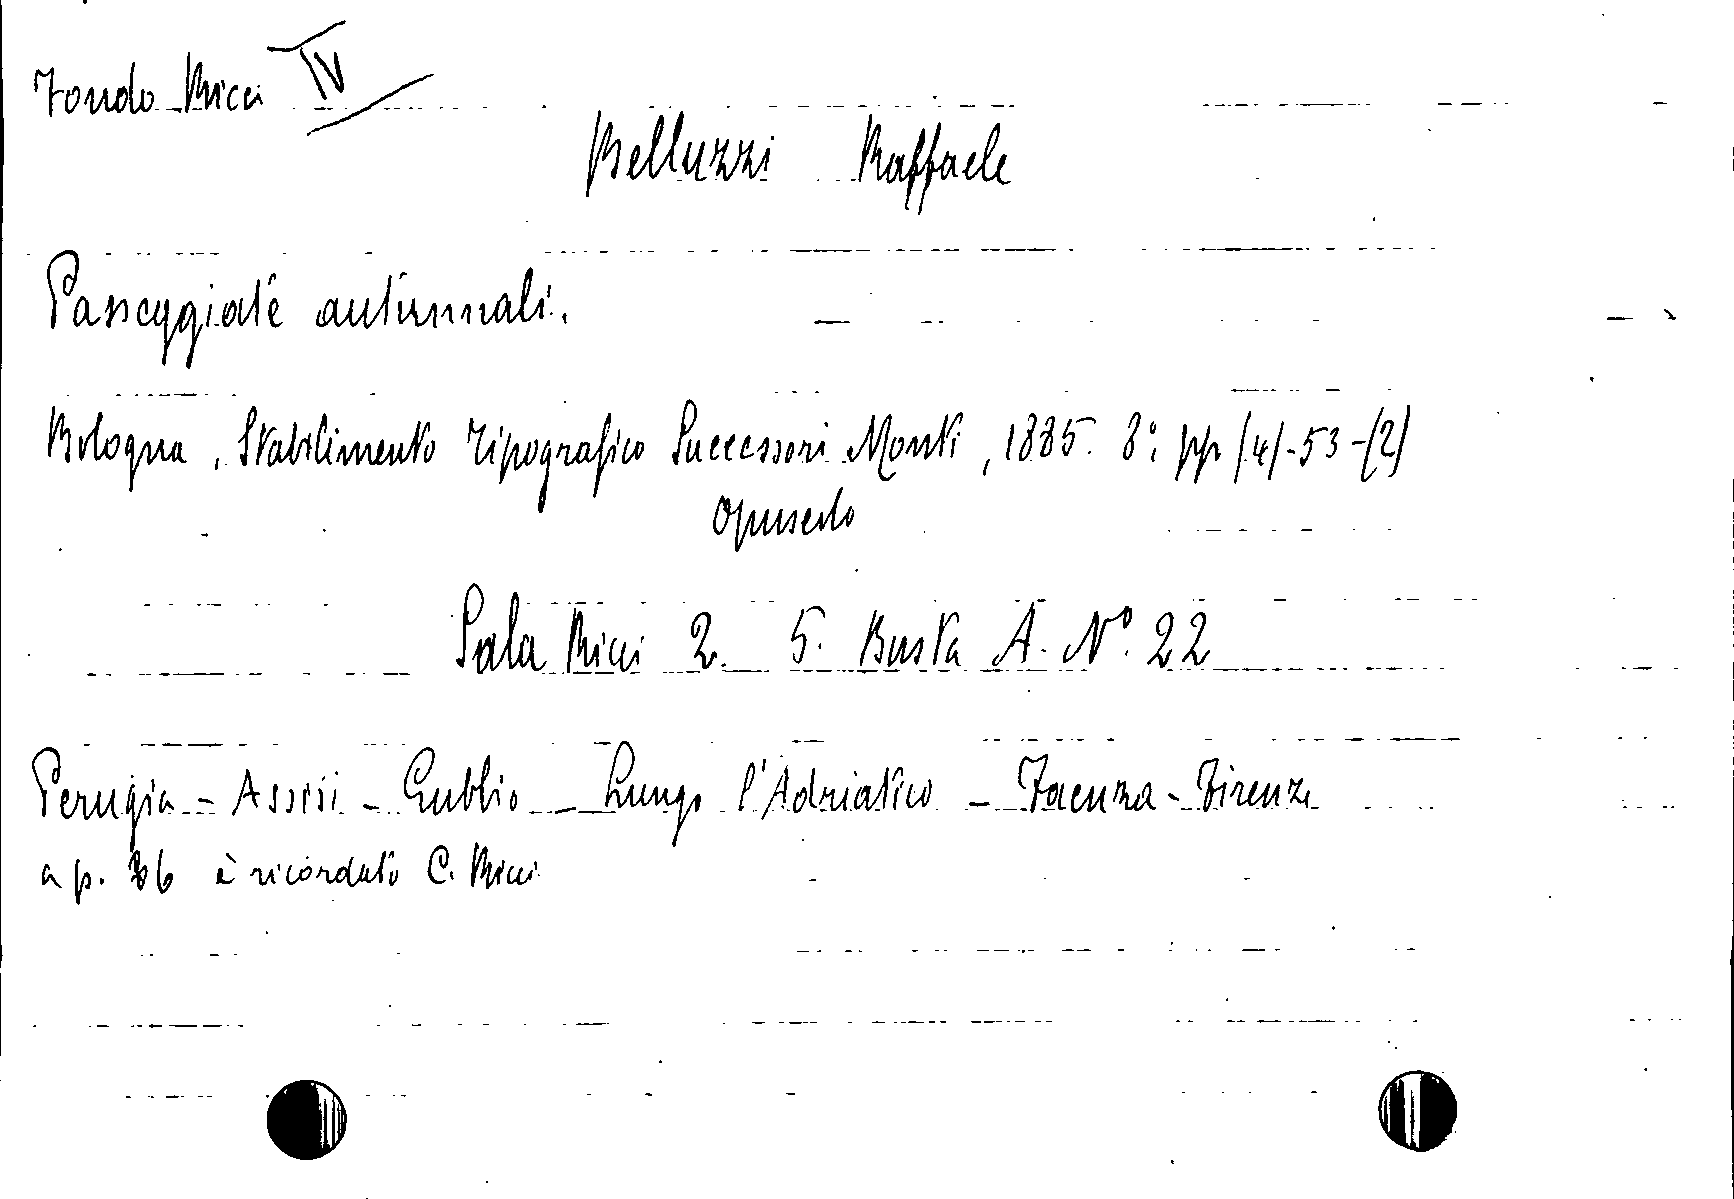 Fondo Ricci IV
Belluzzi Raffaele
Passeggiate autunnali.
Bologna, Stabilimento Tipografico Successori Monti, 1885. 8º pp (4)-53-(2)
Opuscolo
Sala Ricci 2. 5. Busta A. Nº. 22
Perugia - Assisi - Gubbio - Lungo l'Adriatico - Faenza - Firenze
a p. è ricordato C. Ricci